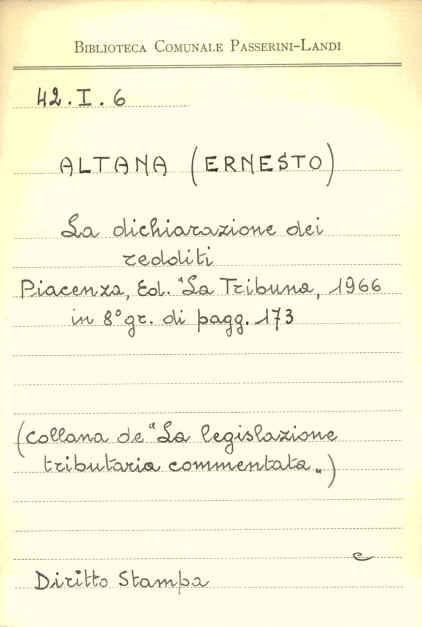 BIBLIOTECA COMUNALE PASSERINI-LANDI
42.I.6
ALTANA (ERNESTO)
La dichiarazione dei
redditi
Piacenza, Ed. "La Tribuna, 1966
in 8° gr. di pagg. 173
(collana de "La legislazione
tributaria commentata„)
e
Diritto Stampa